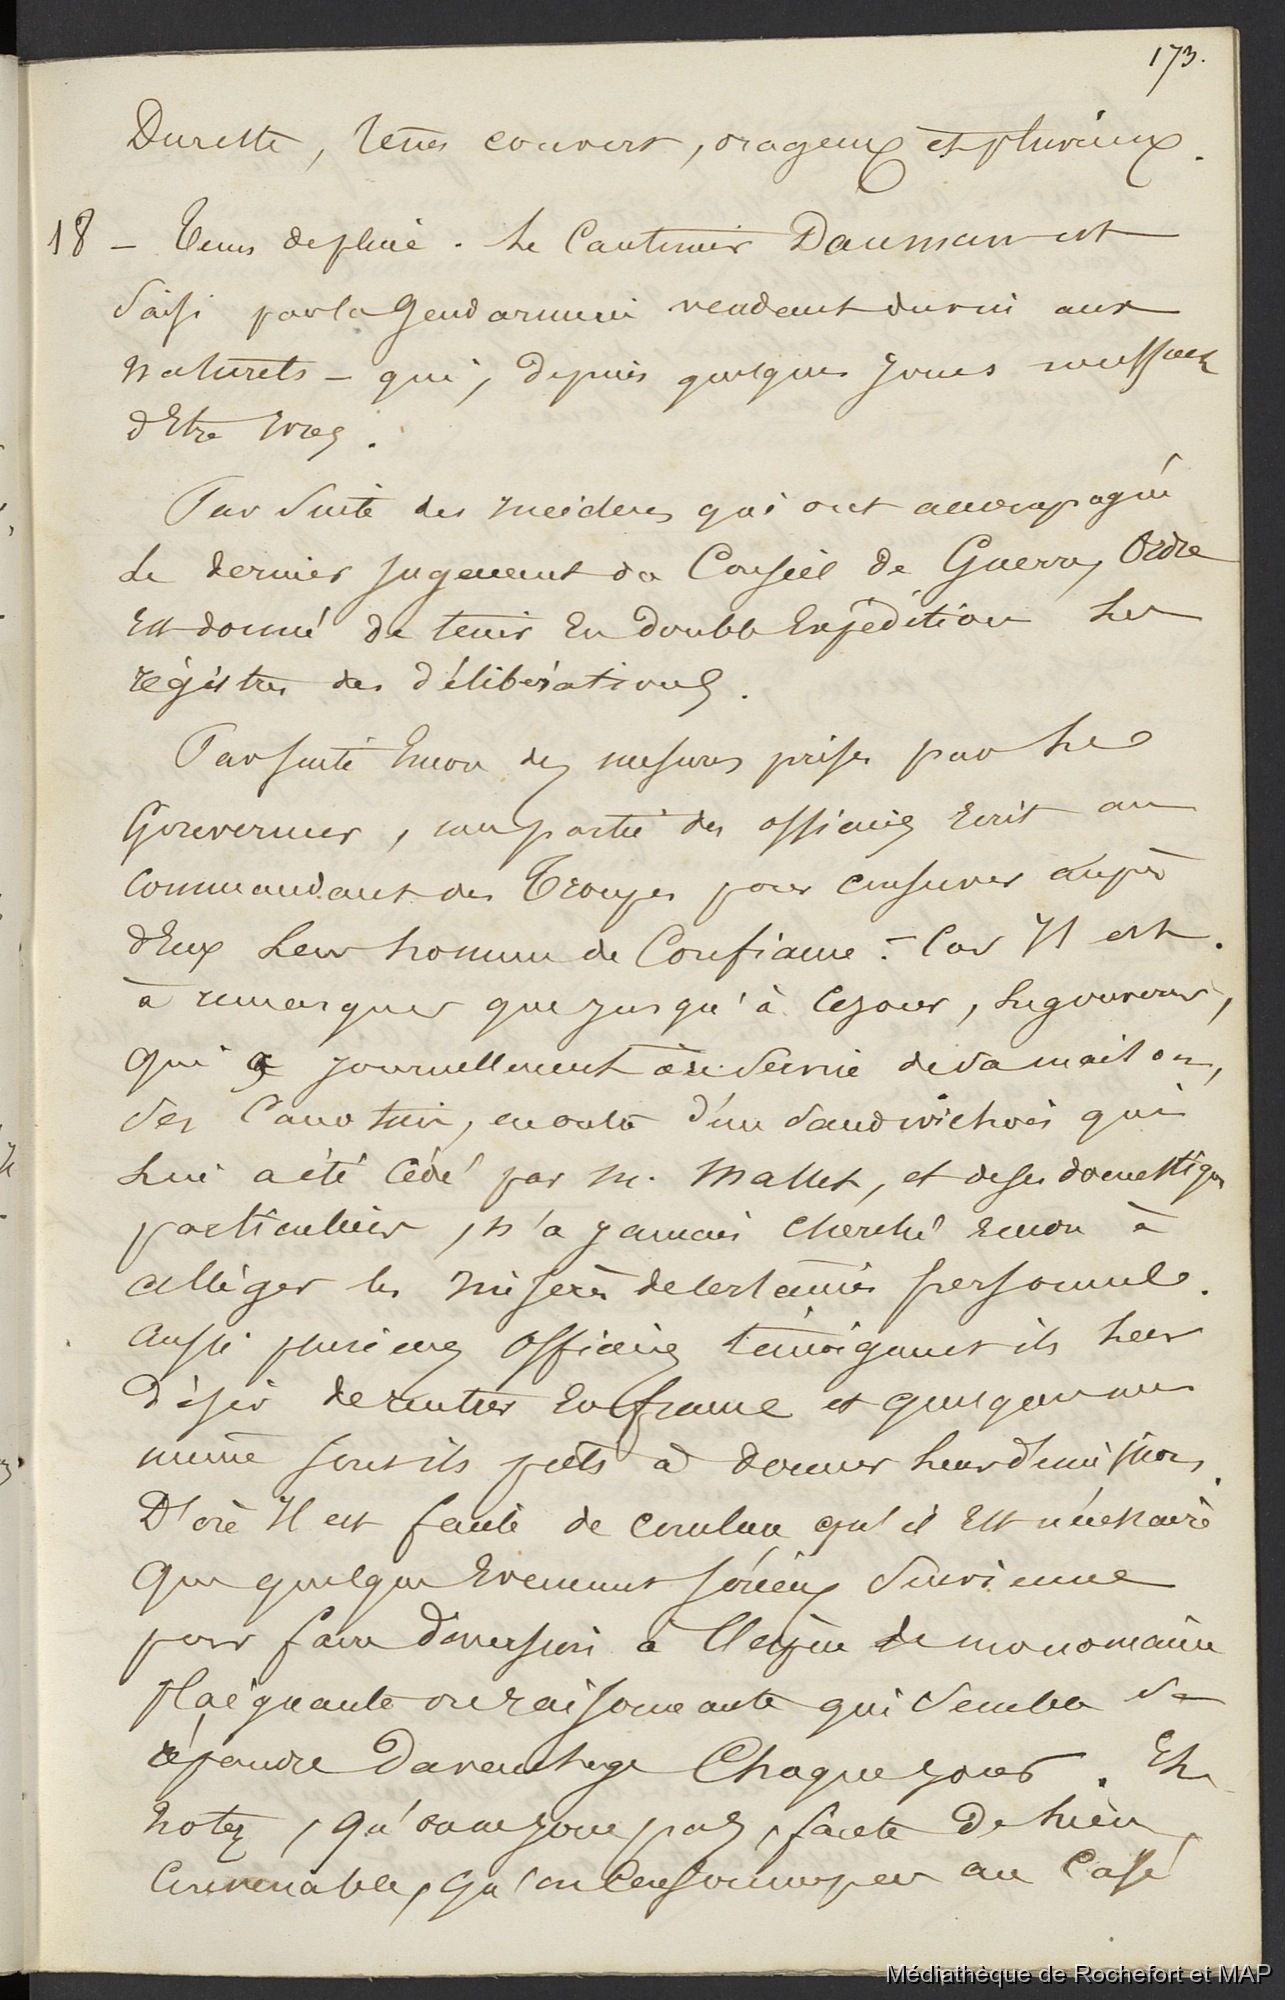 173.
Durette, Tems couvert, orageux et pluvieux.
18 - Tems de pluie. Le Cantinier Daumann est
Saisi par la Gendarmerie vendant du vin aux
naturels - qui, depuis quelques jours ne cessent
d'Etre Ivres.
Par Suite des Incidens qui ont accompagné
Le dernier jugement du Conseil de Guerre, Ordre
Est donné de tenir En double Expédition Les
régistres des délibérations.
Par suite Encor des mesures prises par Le
Gouverneur, une partie des officiers Ecrit au
Commandant des Troupes pour conserver auprès
d'Eux Leur homme de Confiance. - Car Il est
à remarquer que jusqu'à ce jour, Le gouverneur,
qui a journellement au Service de Sa maison,
Ses Canotiers, en outre d'un Sandwichois qui
Lui a été Cédé par M. Mallet, et de ses domestiques
particuliers, n'a jamais cherché encor à
alléger les misères de certains personnels.
Aussi plusieurs Officiers témoignent ils Leur
Désir de rentrer En france et quelques uns
même sont ils prêts à donner Leur démission.
D'où Il est facile de conclure qu'il Est nécessaire
Que quelque Evenement sérieux Survienne
pour faire diversion à l'Espèce de monomanie
plaignante ou raisonnante qui Semble Se
répandre Davantage Chaque jour. Et
Notez, qu'on ne joue pas, faute de Lieu
Convenable, qu'on Consomme peu au Café
Médiathèque de Rochefort et MAP